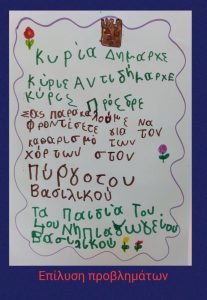 Κυρία Δήμαρχε
Κύριε Αντιδήμαρχε
Κύριε Πρόεδρε
Σας παρακαλούμε να
φροντίσετε για τον
καθαρισμό των
χόρτων στον
Πύργο του
Βασιλικού
Τα Παιδιά Του
Νηπιαγωγείου
Βασιλικού
Επίλυση προβλημάτων